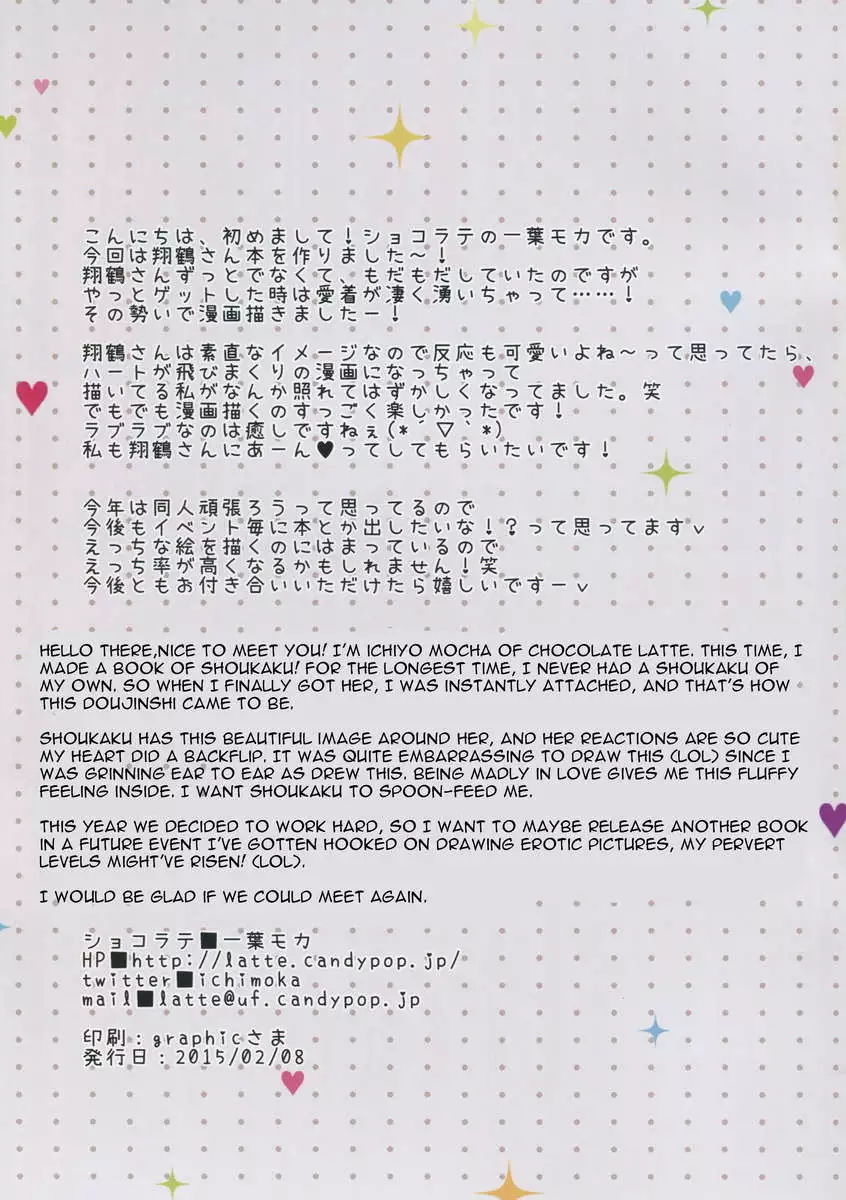 こんにちは、初めまして！ショコラテの一葉モカです。
今回は翔鶴さん本を作りました～！
翔鶴さんずっとでなくて、もだもだしていたのですが
やっとゲットした時は愛着が凄く湧いちゃって……！
その勢いで漫画描きましたー！
翔鶴さんは素直なイメージなので反応も可愛いよね～って思ってたら、
ハートが飛びまくりの漫画になっちゃって
描いてる私がなんか照れてはずかしくなってました。笑
でもでも漫画描くのすっごく楽しかったです！
ラブラブなのは癒しですねぇ(*´▽`*)
私も翔鶴さんにあーん♥ってしてもらいたいです！
今年は同人頑張ろうって思ってるので
今後もイベント毎に本とか出したいな！？って思ってますv
えっちな絵を描くのにはまっているので
えっち率が高くなるかもしれません！笑
今後ともお付き合いいただけたら嬉しいですーv
HELLO THERE,NICE TO MEET YOU! I'M ICHIYO MOCHA OF CHOCOLATE LATTE. THIS TIME, I
MADE A BOOK OF SHOUKAKU! FOR THE LONGEST TIME, I NEVER HAD A SHOUKAKU OF
MY OWN. SO WHEN I FINALLY GOT HER, I WAS INSTANTLY ATTACHED, AND THAT'S HOW
THIS DOUJINSHI CAME TO BE.
SHOUKAKU HAS THIS BEAUTIFUL IMAGE AROUND HER, AND HER REACTIONS ARE SO CUTE
MY HEART DID A BACKFLIP. IT WAS QUITE EMBARRASSING TO DRAW THIS (LOL) SINCE I
WAS GRINNING EAR TO EAR AS DREW THIS. BEING MADLY IN LOVE GIVES ME THIS FLUFFY
FEELING INSIDE. I WANT SHOUKAKU TO SPOON-FEED ME.
THIS YEAR WE DECIDED TO WORK HARD, SO I WANT TO MAYBE RELEASE ANOTHER BOOK
IN A FUTURE EVENT I'VE GOTTEN HOOKED ON DRAWING EROTIC PICTURES, MY PERVERT
LEVELS MIGHT'VE RISEN! (LOL).
I WOULD BE GLAD IF WE COULD MEET AGAIN.
ショコラテ■一葉モカ
HP■http://latte.candypop.jp/
twitter■ichimoka
mail■latte@uf.candypop.jp
印刷：graphicさま
発行日：2015/02/08